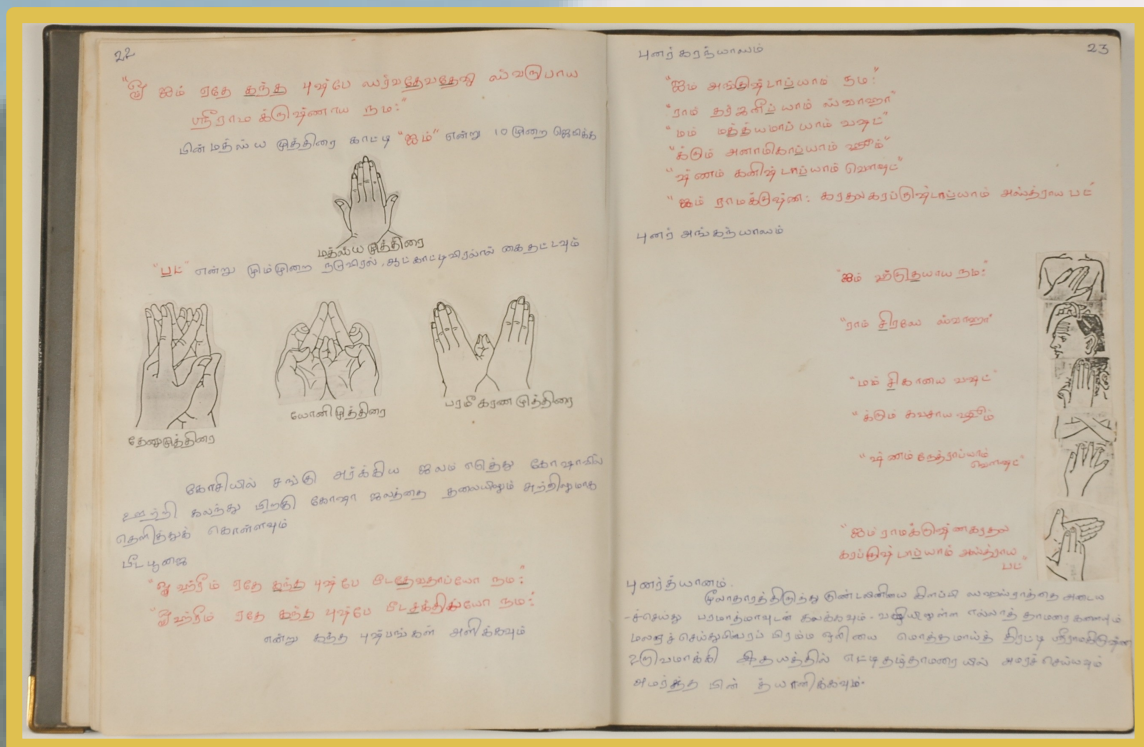 22
"ஓ ஐம் ஏதே கந்த புஷ்பே ஸர்வதேவதேவி ஸ்வரூபாய
ஸ்ரீராம க்ருஷ்ணாய நம:"
பின் மத்ஸ்ய முத்திரை காட்டி "ஐம்" என்று 10 முறை ஜெபிக்க
மத்ஸ்ய முத்திரை
"பட்" என்று மும்முறை நடுவிரல், ஆட்காட்டிவிரலால் கை தட்டவும்
தேனுமுத்திரை
யோனி முத்திரை
பரமீகரண முத்திரை
கோசியில் சங்கு அர்க்கிய ஜலம் எடுத்து கோஷாவில்
ஊற்றி கலந்து பிறகு கோஷா ஜலத்தை தலையிலும் சுற்றிலுமாக
தெளித்துக் கொள்ளவும்
பீடபூஜை
"ஓ ஹ்ரீம் ஏதே கந்த புஷ்பே பீடதேவதாப்யோ நம:"
"ஓ ஹ்ரீம் ஏதே கந்த புஷ்பே பீடசக்திப்யோ நம:"
என்று கந்த புஷ்பங்கள் அளிக்கவும்
23
புனர் கரந்யாஸம்
"ஐம் அங்குஷ்டாப்யாம் நம:"
"ராம் தர்ஜனீப்யாம் ஸ்வாஹா"
"மம் மத்த்யமாப்யாம் வஷட்"
"க்ரும் அனாமிகாப்யாம் ஹூம்"
"ஷ்ணம் கனிஷ்டாப்யாம் வௌஷட்"
"ஐம் ராமக்ருஷ்ண: கரதலகரப்ருஷ்டாப்யாம் அஸ்த்ராய பட்"
புனர் அங்கந்யாஸம்
"ஐம் ஹ்ருதயாய நம:"
"ராம் சிரஸே ஸ்வாஹா"
"மம் சிகாயை வஷட்"
"க்ரும் கவசாய ஹூம்
"ஷ்ணம் நேத்ராப்யாம்
வௌஷட்"
"ஐம் ராமக்ருஷ்ண கரதல
கரப்ருஷ்டாப்யாம் அஸ்த்ராய
பட்"
புனர்த்யானம்.
மூலாதாரத்திலிருந்து குண்டலினியை கிளப்பி ஸஹஸ்ராரத்தை அடைய
-ச்செய்து பரமாத்மாவுடன் கலக்கவும். வழியிலுள்ள எல்லாத் தாமரைகளையும்
மலரச் செய்து பிரம்ம ஒளியை மொத்தமாய்த் திரட்டி ஸ்ரீராமகிருஷ்ண
உருவமாக்கி இதயத்தில் எட்டிதழ்தாமரையில் அமரச் செய்யவும்
அமர்த்த பின் த்யானிக்கவும்.